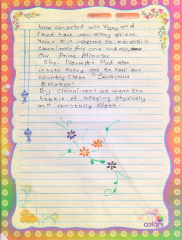 have competed with Yuyg and
could have won many prizes
hence it is important to maintain
cleanliness for one and all,
Our Prime Minister
Shri Narender Modi also
invite every one to keep our
country clean "Swachta
By Cleanliness we mean the
habits of keeping physically
and mentally clean
colors